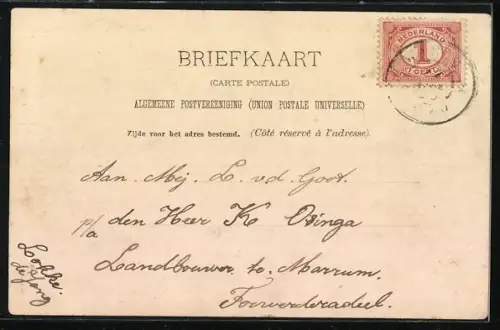 BRIEFKAART
(CARTE POSTALE)
ALGEMEENE POSTVEREENIGING (UNION POSTALE UNIVERSELLE)
Zijde voor het adres bestemd. (Côté réservé à l'adresse).
NEDERLAND
1
CENT
Aan Mej. L. v.d. Goot.
p/a den Heer K Osinga
Landbouwer te Marrum.
Ferwerderadeel.
Lokke.
de Jong